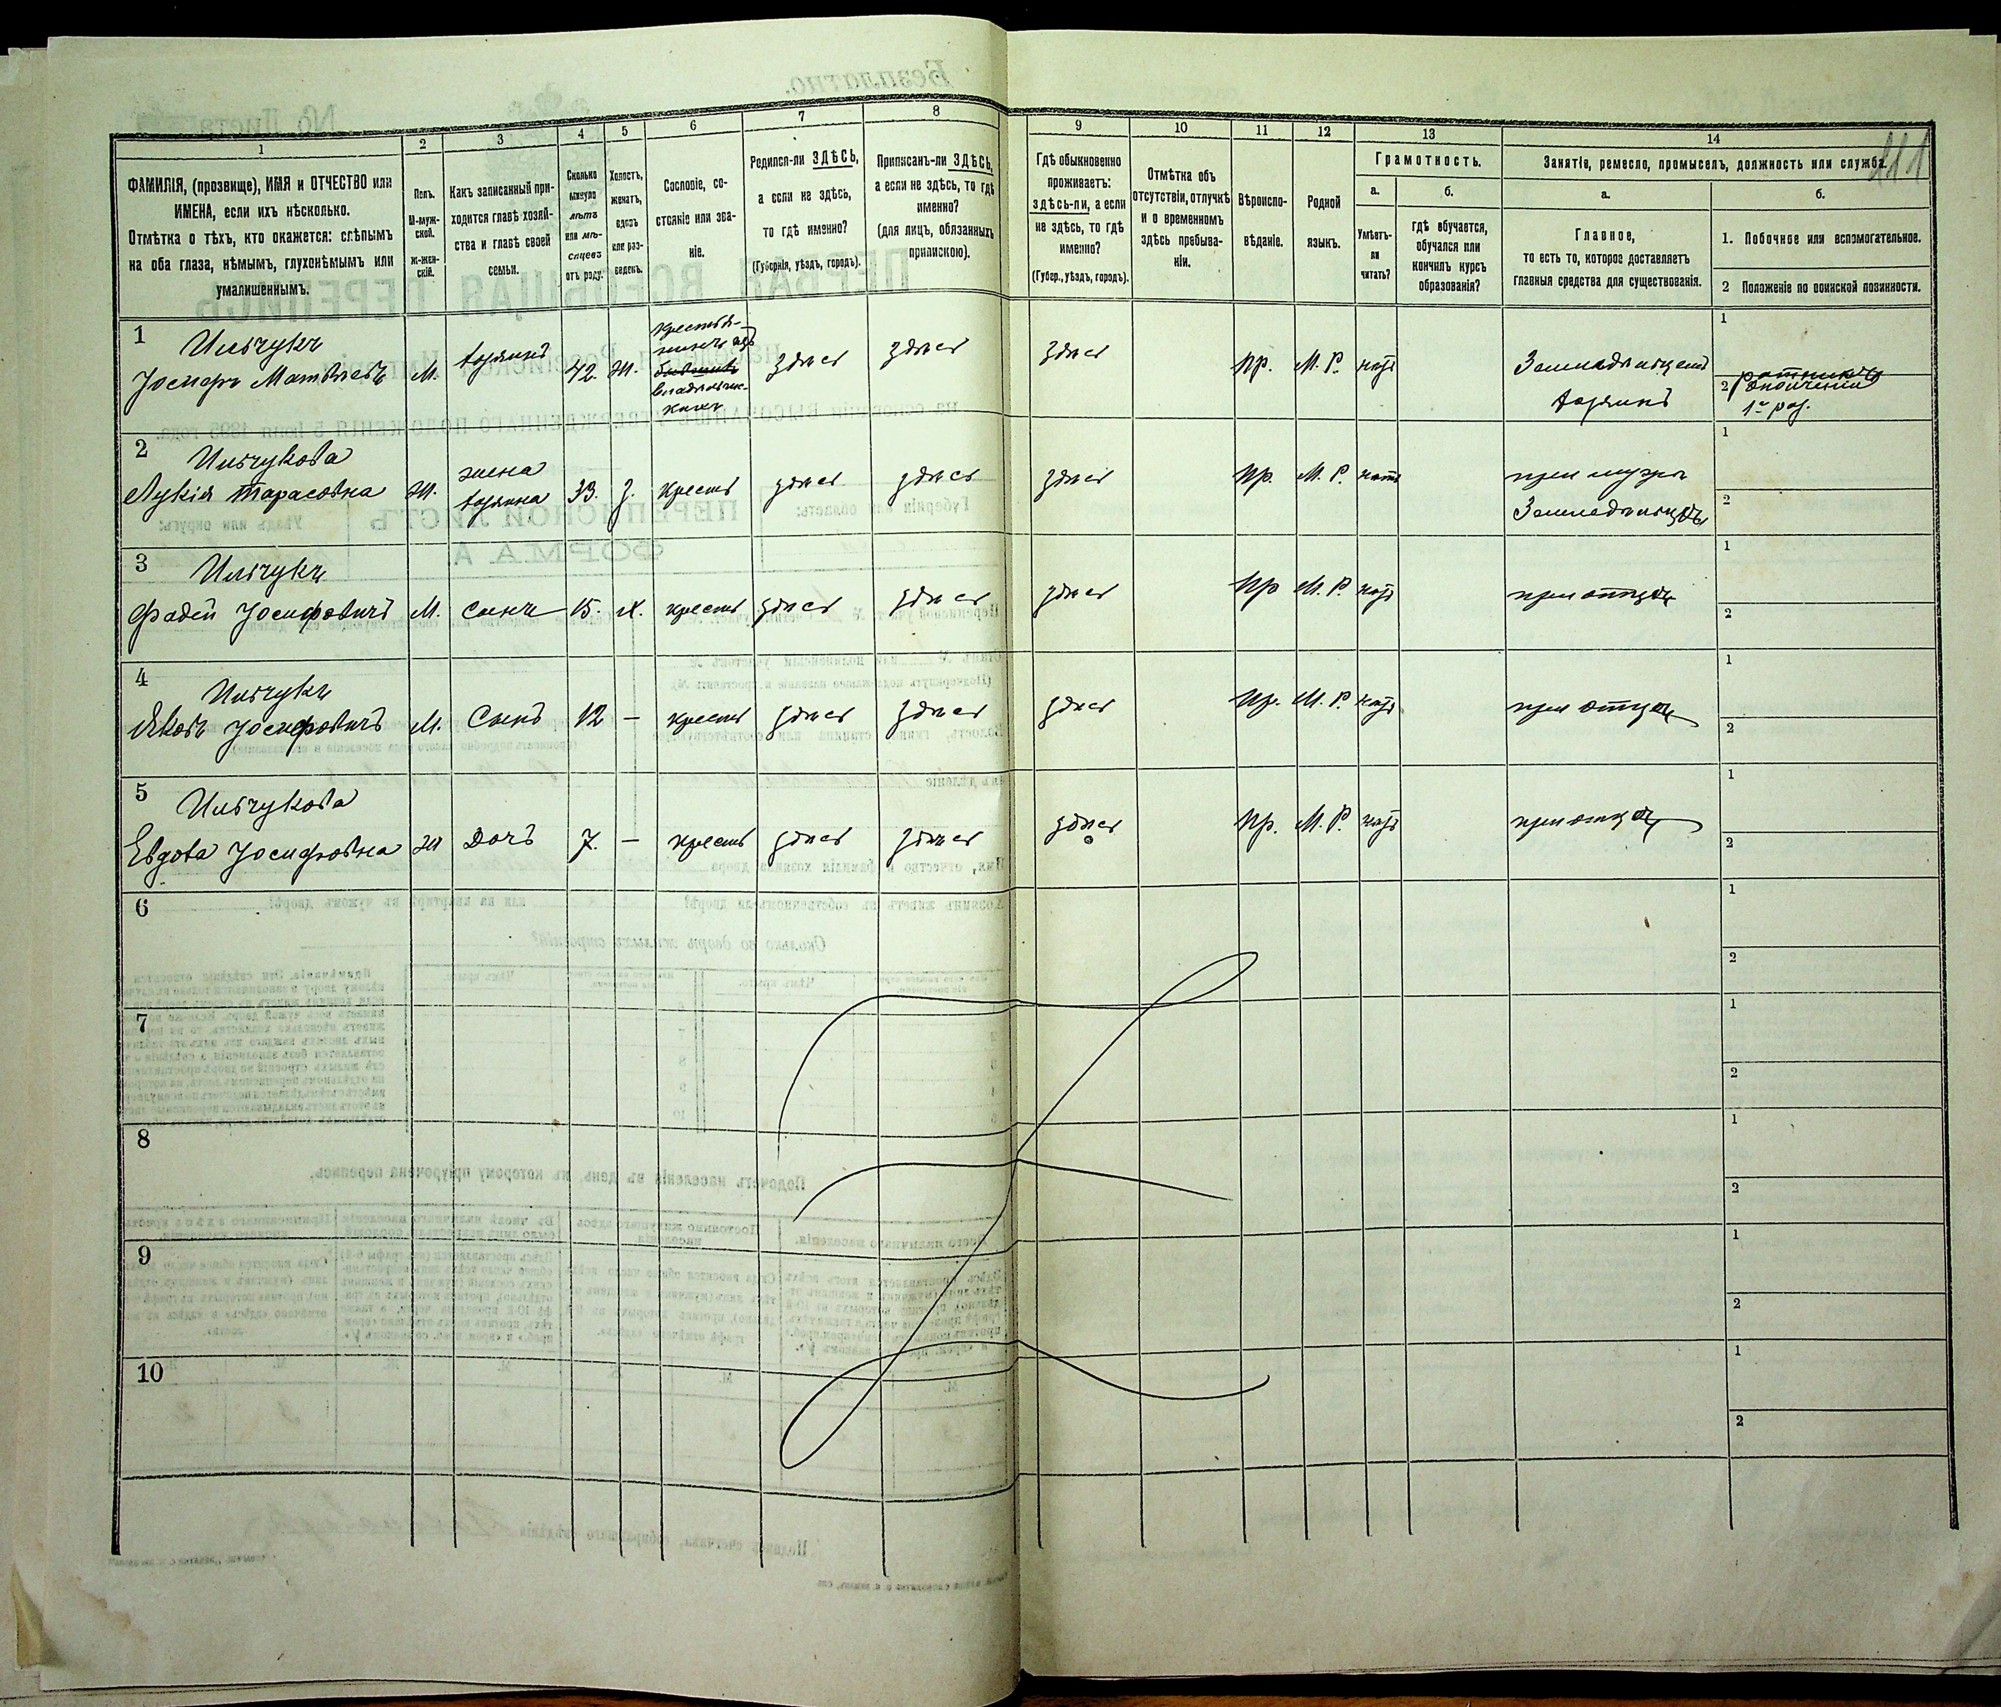 1
2
3
4
5
6
7
8
ФАМИЛІЯ, (прозвище), ИМЯ и ОТЧЕСТВО или
ИМЕНА, если ихъ нѣсколько.
Отмѣтка о тѣхъ, кто окажется: слѣпымъ
на оба глаза, нѣмымъ, глухонѣмымъ или
умалишеннымъ.
Полъ.
М-муж-
ской.
Ж-жен-
скій.
Какъ записанный при-
ходится главѣ хозяй-
ства и главѣ своей
семьи.
Сколько
минуло
лѣтъ
или мѣ-
сяцевъ
отъ роду.
Холостъ,
женатъ,
вдовъ
или раз-
веденъ.
Сословіе, со-
стояніе или зва-
ніе.
Родился-ли ЗДѢСЬ,
а если не здѣсь,
то гдѣ именно?
(Губернія, уѣздъ, городъ).
Приписанъ-ли ЗДѢСЬ,
а если не здѣсь, то гдѣ
именно?
(для лицъ, обязанныхъ
припискою).
9
10
11
12
13
14
211
Гдѣ обыкновенно
проживаетъ:
здѣсь-ли, а если
не здѣсь, то гдѣ
именно?
(Губер., уѣздъ, городъ).
Отмѣтка объ
отсутствіи, отлучкѣ
и о временномъ
здѣсь пребыва-
ніи.
Вѣроиспо-
вѣданіе.
Родной
языкъ.
Грамотность.
а.
б.
Умѣетъ-
ли
читать?
гдѣ обучается,
обучался или
кончилъ курсъ
образованія?
Занятіе, ремесло, промыселъ, должность или служба.
а.
б.
Главное,
то есть то, которое доставляетъ
главныя средства для существованія.
1. Побочное или вспомогательное.
2 Положеніе по воинской повинности.
1
Ильчукъ
Іосифъ Матвѣевъ М. хозяинъ 42. Ж. крестья-
нинъ изъ
бывших
владѣльче-
скихъ
здѣсь здѣсь здѣсь пр. М. Р. нѣтъ Земледѣлецъ
хозяинъ
1
2 ратникъ
ополченія
1го раз.
2
Ильчукова
Лукія Тарасовна ж. жена
хозяина 33. З. крест здѣсь здѣсь здѣсь пр. М. Р. нѣтъ при мужѣ
Земледѣльцѣ
1
2
3
Ильчукъ
Фадей Іосифовичъ М. сынъ 15. Х. крест здѣсь здѣсь здѣсь пр М. Р. нѣтъ при отцѣ
1
2
4
Ильчукъ
Яковъ Іосифовичъ М. Сынъ 12 — крест здѣсь здѣсь здѣсь пр. М. Р. нѣтъ при отцѣ
1
2
5
Ильчукова
Евдока Іосифовна ж дочь 7. — крест здѣсь здѣсь здѣсь пр. М. Р. нѣтъ при отцѣ
1
2
6
1
2
7
1
2
8
1
2
9
1
2
10
1
2